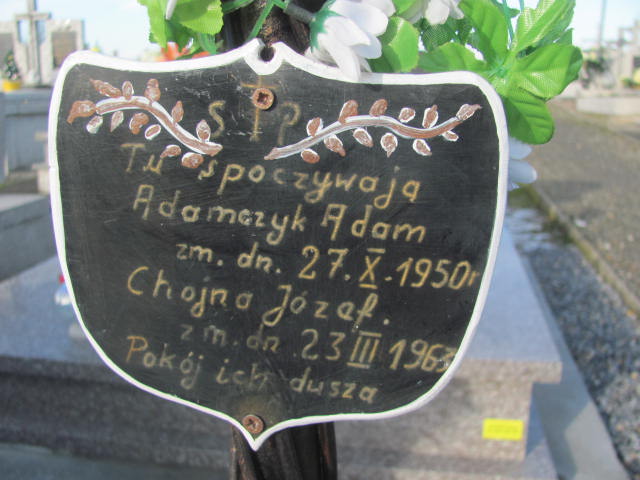 Ś P
Tu śpoczywają
Adamczyk Adam
zm. dn. 27.X.1950r
Chojna Józef.
zm. dn 23 III 1963
Pokój ich dusza